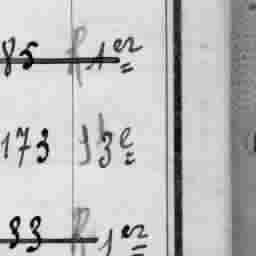 85 1er
173 13e
33 1er